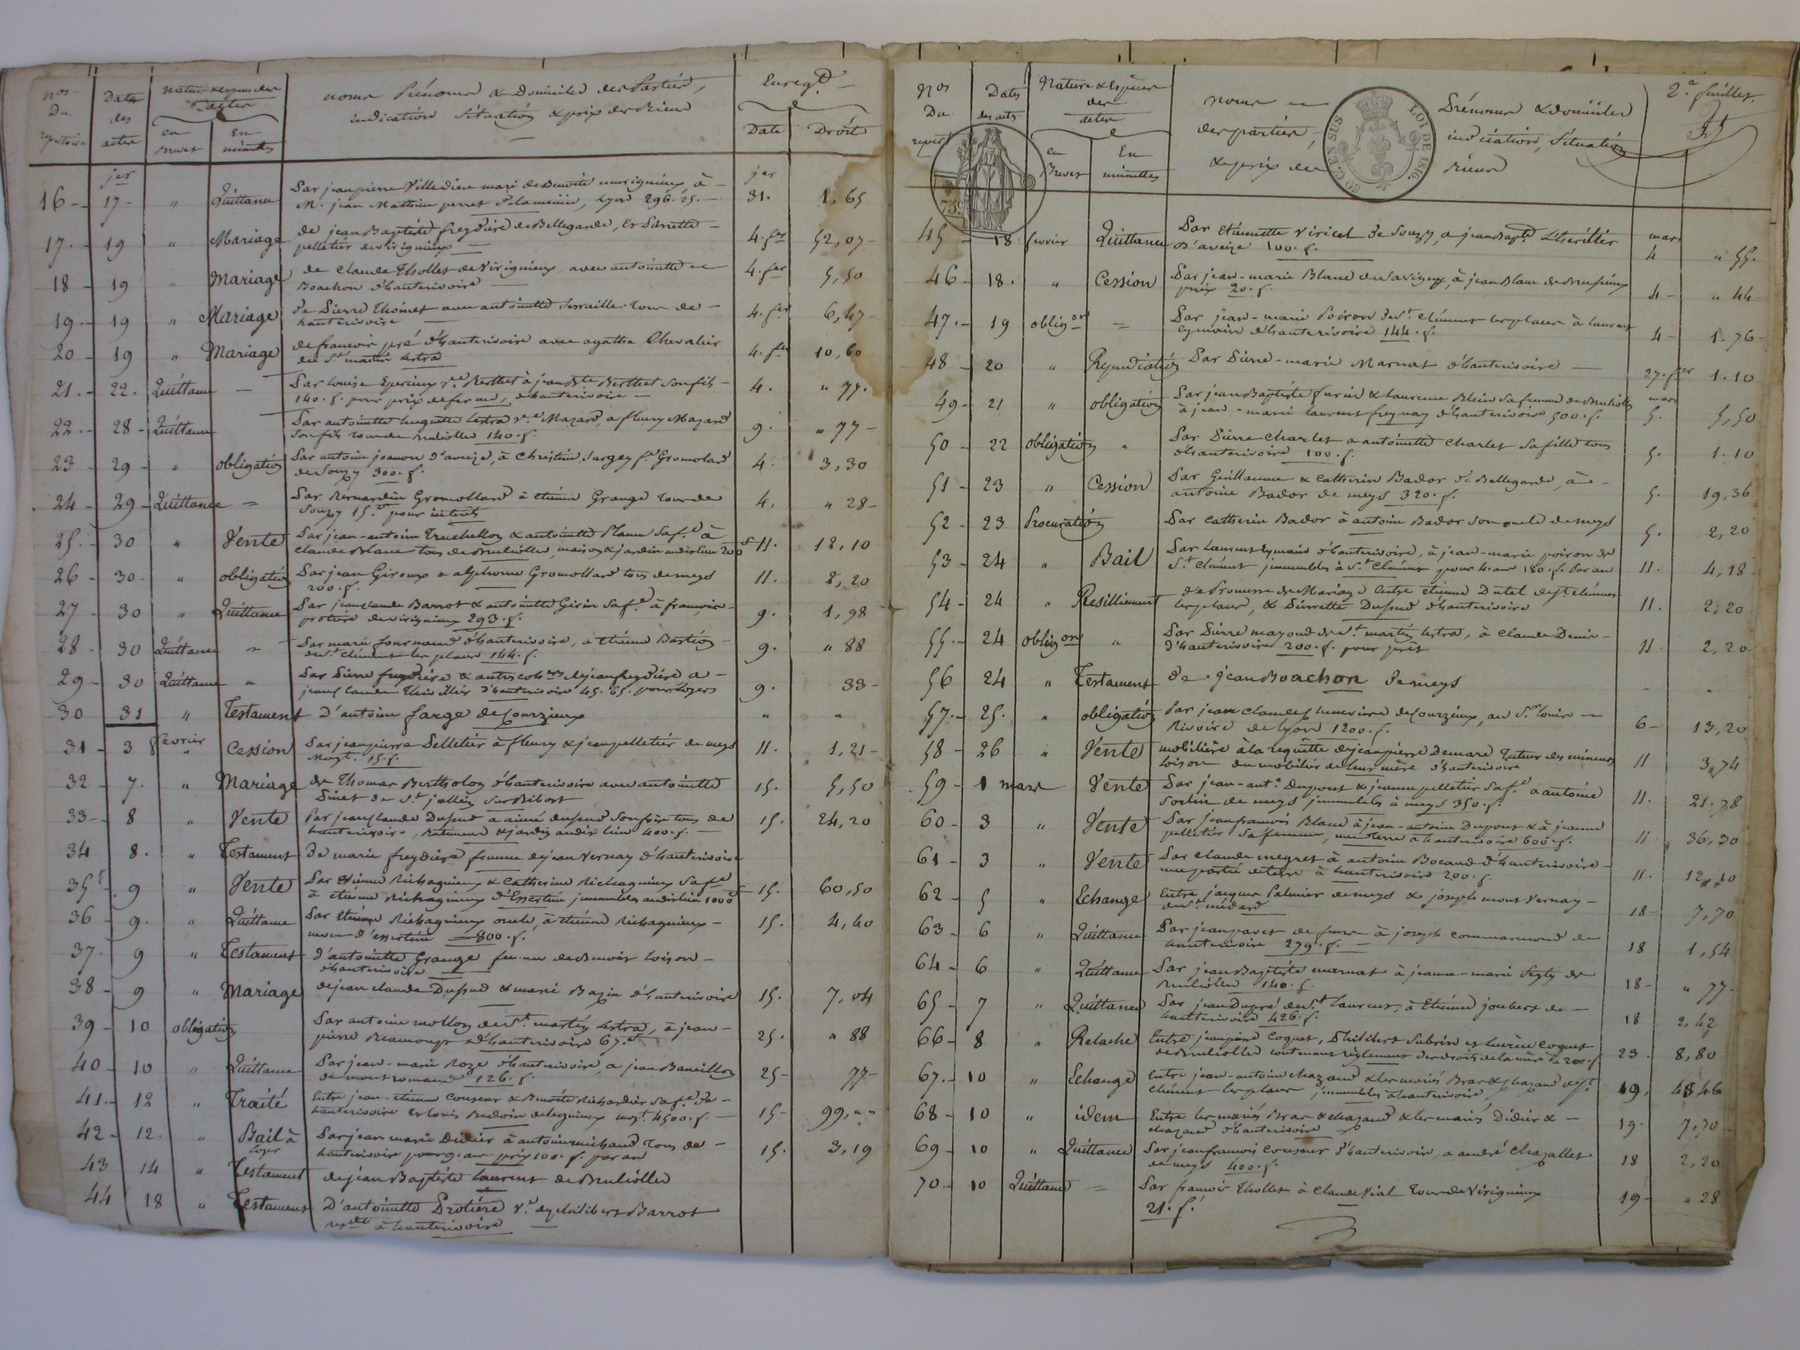 Nos Du repertoire
Dates des actes
Nature & espèces des actes
en Brevet
En minutes
noms Prénoms & Domiciles des Parties,
indications Situations & prix des Biens
Enreg.t
Date
Droits
jer
jer
16 - 17 - " Quittance Par jean pierre Villedieu mari de Benoite à
M. jean Mathieu perret Lyon 296. 25. — 31. 1,65
17. - 19 " Mariage de jean Baptiste freydière de Bellegarde, & Pierrette
pelletier de virigneux — 4. fer 52,07 -
18 - 19 " Mariage de Claude Thollet de Virigneux avec antoinette
Boachon d'hauterivoire — 4. fer 5,50
19. - 19 " Mariage de Pierre Thoinet avec antoinette tous de -
hauterivoire — 4. fer 6,47 -
20 - 19 " Mariage de francois pré d'hauterivoire avec agathe Chevalier
de St martin Lestra 4. fer 10,60
21. - 22. Quittance — Par Louise ve Berthet à jean Bte Berthet son fils -
140. f. pour prix de ferme, d'hauterivoire — 4. " 77.
22. - 28 - Quittance Par antoinette huguette Lestra ve Mazard a fleury Mazard
son fils tous de Brulliolles 140. f. 9. " 77 -
23 - 29 - " obligation Par antoine joannon d'aveize, à Christine fe Gromolard
de Souzy 300. f. 4. 3,30
24 - 29 - Quittance = Par Bernardin Gromollard à etienne Grange tous de
Souzy 15. f pour intérêts 4. " 28 -
25. - 30 " Vente Par jean-antoine Truchellon & antoinette sa fe à
Claude Blanc tous de Brulliolles, maison & jardin audit lieu 200 f 11. 12,10
26 - 30. " obligation Par jean Giroux a alphonse Gromollard tous de meys
200. f. 11. 2,20
27 - 30 " Quittance Par jean claude Barrot & antoinette Girin sa fe à francois
protière de virigneux 293. f. 9. 1,98 -
28 - 30 Quittance " Par marie fournand d'hauterivoire, a etienne Bastion
de St clément les places 144. f. 9. " 88
29 - 30 Quittance " Par Pierre freydière & autres cohers de jean freydière a -
jean claude d'hauterivoire 45. f. pour loyers 9. 33 -
30 31 " Testament d'antoine farge de Courzieux " "
31 - 3 février " Cession Par jean pierre Pelletier à fleury & jean pelletier de meys
moyt. 15. f. 11. 1,21 -
32 - 7. " Mariage de Thomas Bertholon d'hauterivoire avec antoinette
Pinet de St julien sur Bibost 15. 5,50
33 - 8 " Vente Par jean claude Dupud a aimé dupud son fils tous de
hauterivoire, Batiment & jardin audit lieu 400. f. — 15. 24,20
34 8. " Testament De marie freydière femme de jean Vernay d'hauterivoire
35 - 9 " Vente Par Etienne Richagneux & Catherine Richagneux sa fe
à etienne Richagneux d'Essertine immeubles audit lieu 1000 f 15. 60,50
36 - 9. " Quittance Par Etienne Richagneux oncle, à etienne Richagneux -
neveu d'essertine 800. f. 15. 4,40
37. 9 " Testament d'antoinette Grange femme de Benoit Loison -
d'hauterivoire
38 - 9 " Mariage de jean claude Dupud & marie Bazin d'hauterivoire 15. 7,04
39 - 10 obligation Par antoine mollon de St martin Lestra, à jean -
pierre Beaumont d'hauterivoire 67. f 25. " 88
40 - 10 " Quittance Par jean - marie Roze d'hauterivoire, a jean
de montromand 126. f. 25 - 77 -
41. - 12 " Traité Entre jean - etienne Couzeur & Benoite Richardier sa fe de -
hauterivoire et Louis moyt 4500. f. — 15 - 99, " "
42 - 12. " Bail à loyer Par jean marie Didier à antoine michaud tous de -
hauterivoire pour 9. ans prix 100. f. par an 15. 3,19
43 - 14 " Testament de jean Baptiste Laurent de Brulliolles
44 18 " Testament D'antoinette Protière Ve de philibert Barrot
à hauterivoire —
Nos Du repert
Dates des actes
Nature & Espèces des actes
en Brevet
En minutes
noms —
des parties,
& prix des
Prénoms & domiciles
indication, Situation
Biens
2.e feuillet.
LOI DE 1816
75c
45 - 18. fevrier Quittance Par Etiennette Viricel de Souzy, a jean Bapte
d'aveize 100. f. mars 4 " 55.
46 - 18. " Cession Par jean-marie Blanc de Savigny, à jean Blanc de Brussieux
prix 20. f. 4 - " 44 -
47. - 19 obligon = Par jean - marie Poiron de St clément les places à laurent
Eymain d'hauterivoire 144. f. 4 - 1. 76 -
48 - 20 " Repudiation Par Pierre - marie Marnat d'hauterivoire — 27. fer 1. 10
49 - 21 " obligation Par jean Baptiste furnid & laurence Blein sa femme de Brulliolles
à jean - marie laurent freynay d'hauterivoire 500. f. mars 5. 5,50
50 - 22 obligation " Par Pierre Charlet a antoinette Charlet sa fille tous
d'hauterivoire 100. f. 5. 1. 10
51 - 23 " Cession Par Guillaume & Catherin Bador de Bellegarde, à -
antoine Bador de meys 320. f. 5. 19,36
52 - 23 Procuration Par Catherin Bador à antoine Bador son oncle de meys 5. 2,20
53 - 24 " Bail Par Laurent Eymain d'hauterivoire, à jean - marie poiron de
St Clément immeubles à St Clément pour 4. ans 180. f. Par an 11. 4,18 -
54 - 24 " Resilliment de Promesse de Mariage Entre etienne Dutel de St clément
les places, & Pierrette Dupud d'hauterivoire 11. 2,20
55. - 24 obligon " Par Pierre mayoud de St martin Lestra, à Claude Denis -
d'hauterivoire 200. f. pour prêt 11 - 2,20 -
56 24 " Testament de jean Boachon de meys
57. - 25. " obligation Par jean claude de Courzieux, au Sr louis —
Rivoire de Lyon 1200. f. 6 - 13,20
58 - 26 " Vente mobilière à la requête de jean pierre Demare Tuteur des mineurs
Loison du mobilier de leur mère d'hauterivoire 11 3,74
59 - 1 mars Vente Par jean - ante Dupont & jeanne pelletier sa fe a antoine
de meys immeubles à meys 350. f. 11. 21. 78
60 - 3 " Vente Par jean francois Blanc à jean - antoine Dupont & à jeanne
pelletier sa femme, une terre à hauterivoire 600. f. 11 - 36,30
61 - 3 " Vente Par claude megret à antoine Bocaud d'hauterivoire -
une partie de terre à hauterivoire 200. f. 11. 12,10
62 - 5 " Echange Entre jacques Palmier de meys & joseph mont Vernay -
de St médard 18 - 7,70
63 - 6 " Quittance Par jean joseph commarmond de
hauterivoire 279. f. — 18 1,54
64 - 6 " Quittance Par jean Baptiste marnat à jeanne - marie de
Brulliolles 140. f. 18 - " 77 -
65 - 7 " Quittance Par jean Dupré de St Laurent, à Etienne joubert de -
hauterivoire 426. f. 18 2,42
66 - 8 " Relache Entre Coquet, Philibert Subrin et Lucrèce Coquet
de Brulliolles contenant règlement des droits de la mère de 200. f 23 - 8,80
67. - 10 " Echange Entre jean - antoine chazaud & les mariés Bras & chazaud de St
clément les places immeubles à hauterivoire 19. 43 46
68 - 10 " idem Entre les mariés Bras & chazaud & les mariés Didier & -
chazaud d'hauterivoire 19. 7,70 -
69 - 10 " Quittance Par jean francois Couzeur d'hauterivoire, a andré Chazallet
de meys 400. f. 18 2,20
70 - 10 Quittance = Par francois Thollet à Claude Vial tous de Virigneux
21. f. 19 - " 28